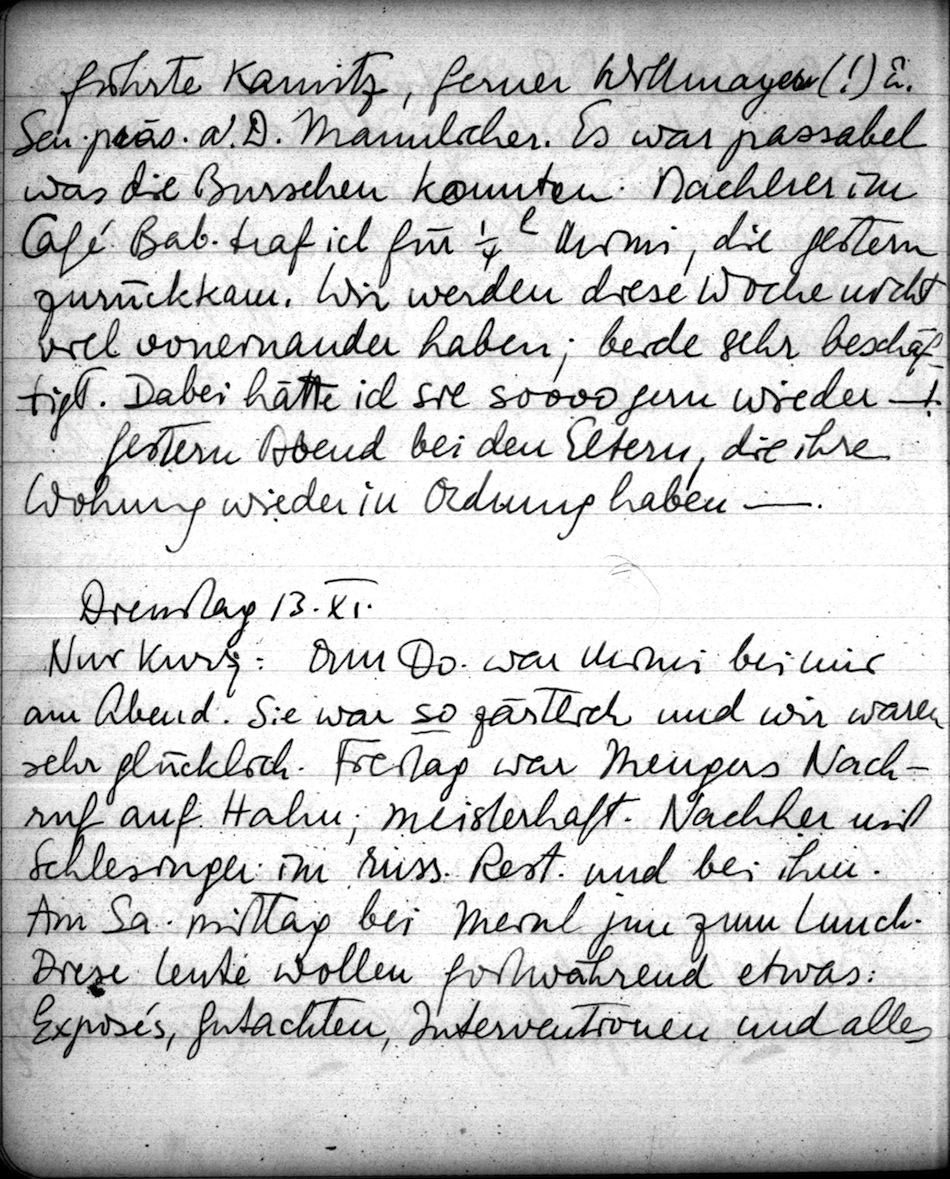 führte Kamitz, ferner Wollmayer (!) u.
Sen.präs. a. D. Mannlicher. Es war passabel
was die Burschen konnten. Nachher im
Café Bab. traf ich für ¼ h Mimi, die gestern
zurückkam. Wir werden diese Woche nicht
viel voneinander haben; beide sehr beschäf-
tigt. Dabei hätte ich sie soooo gern wieder —!
Gestern Abend bei den Eltern, die ihre
Wohnung wieder in Ordnung haben —.
Dienstag 13. XI.
Nur kurz: Am Do. war Mimi bei mir
am Abend. Sie war so zärtlich und wir waren
sehr glücklich. Freitag war Mengers Nach-
ruf auf Hahn; meisterhaft. Nachher mit
Schlesinger im russ. Rest. und bei ihm.
Am Sa. mittag bei Meinl jun zum Lunch.
Diese Leute wollen fortwährend etwas:
Exposés, Gutachten, Interventionen und alles